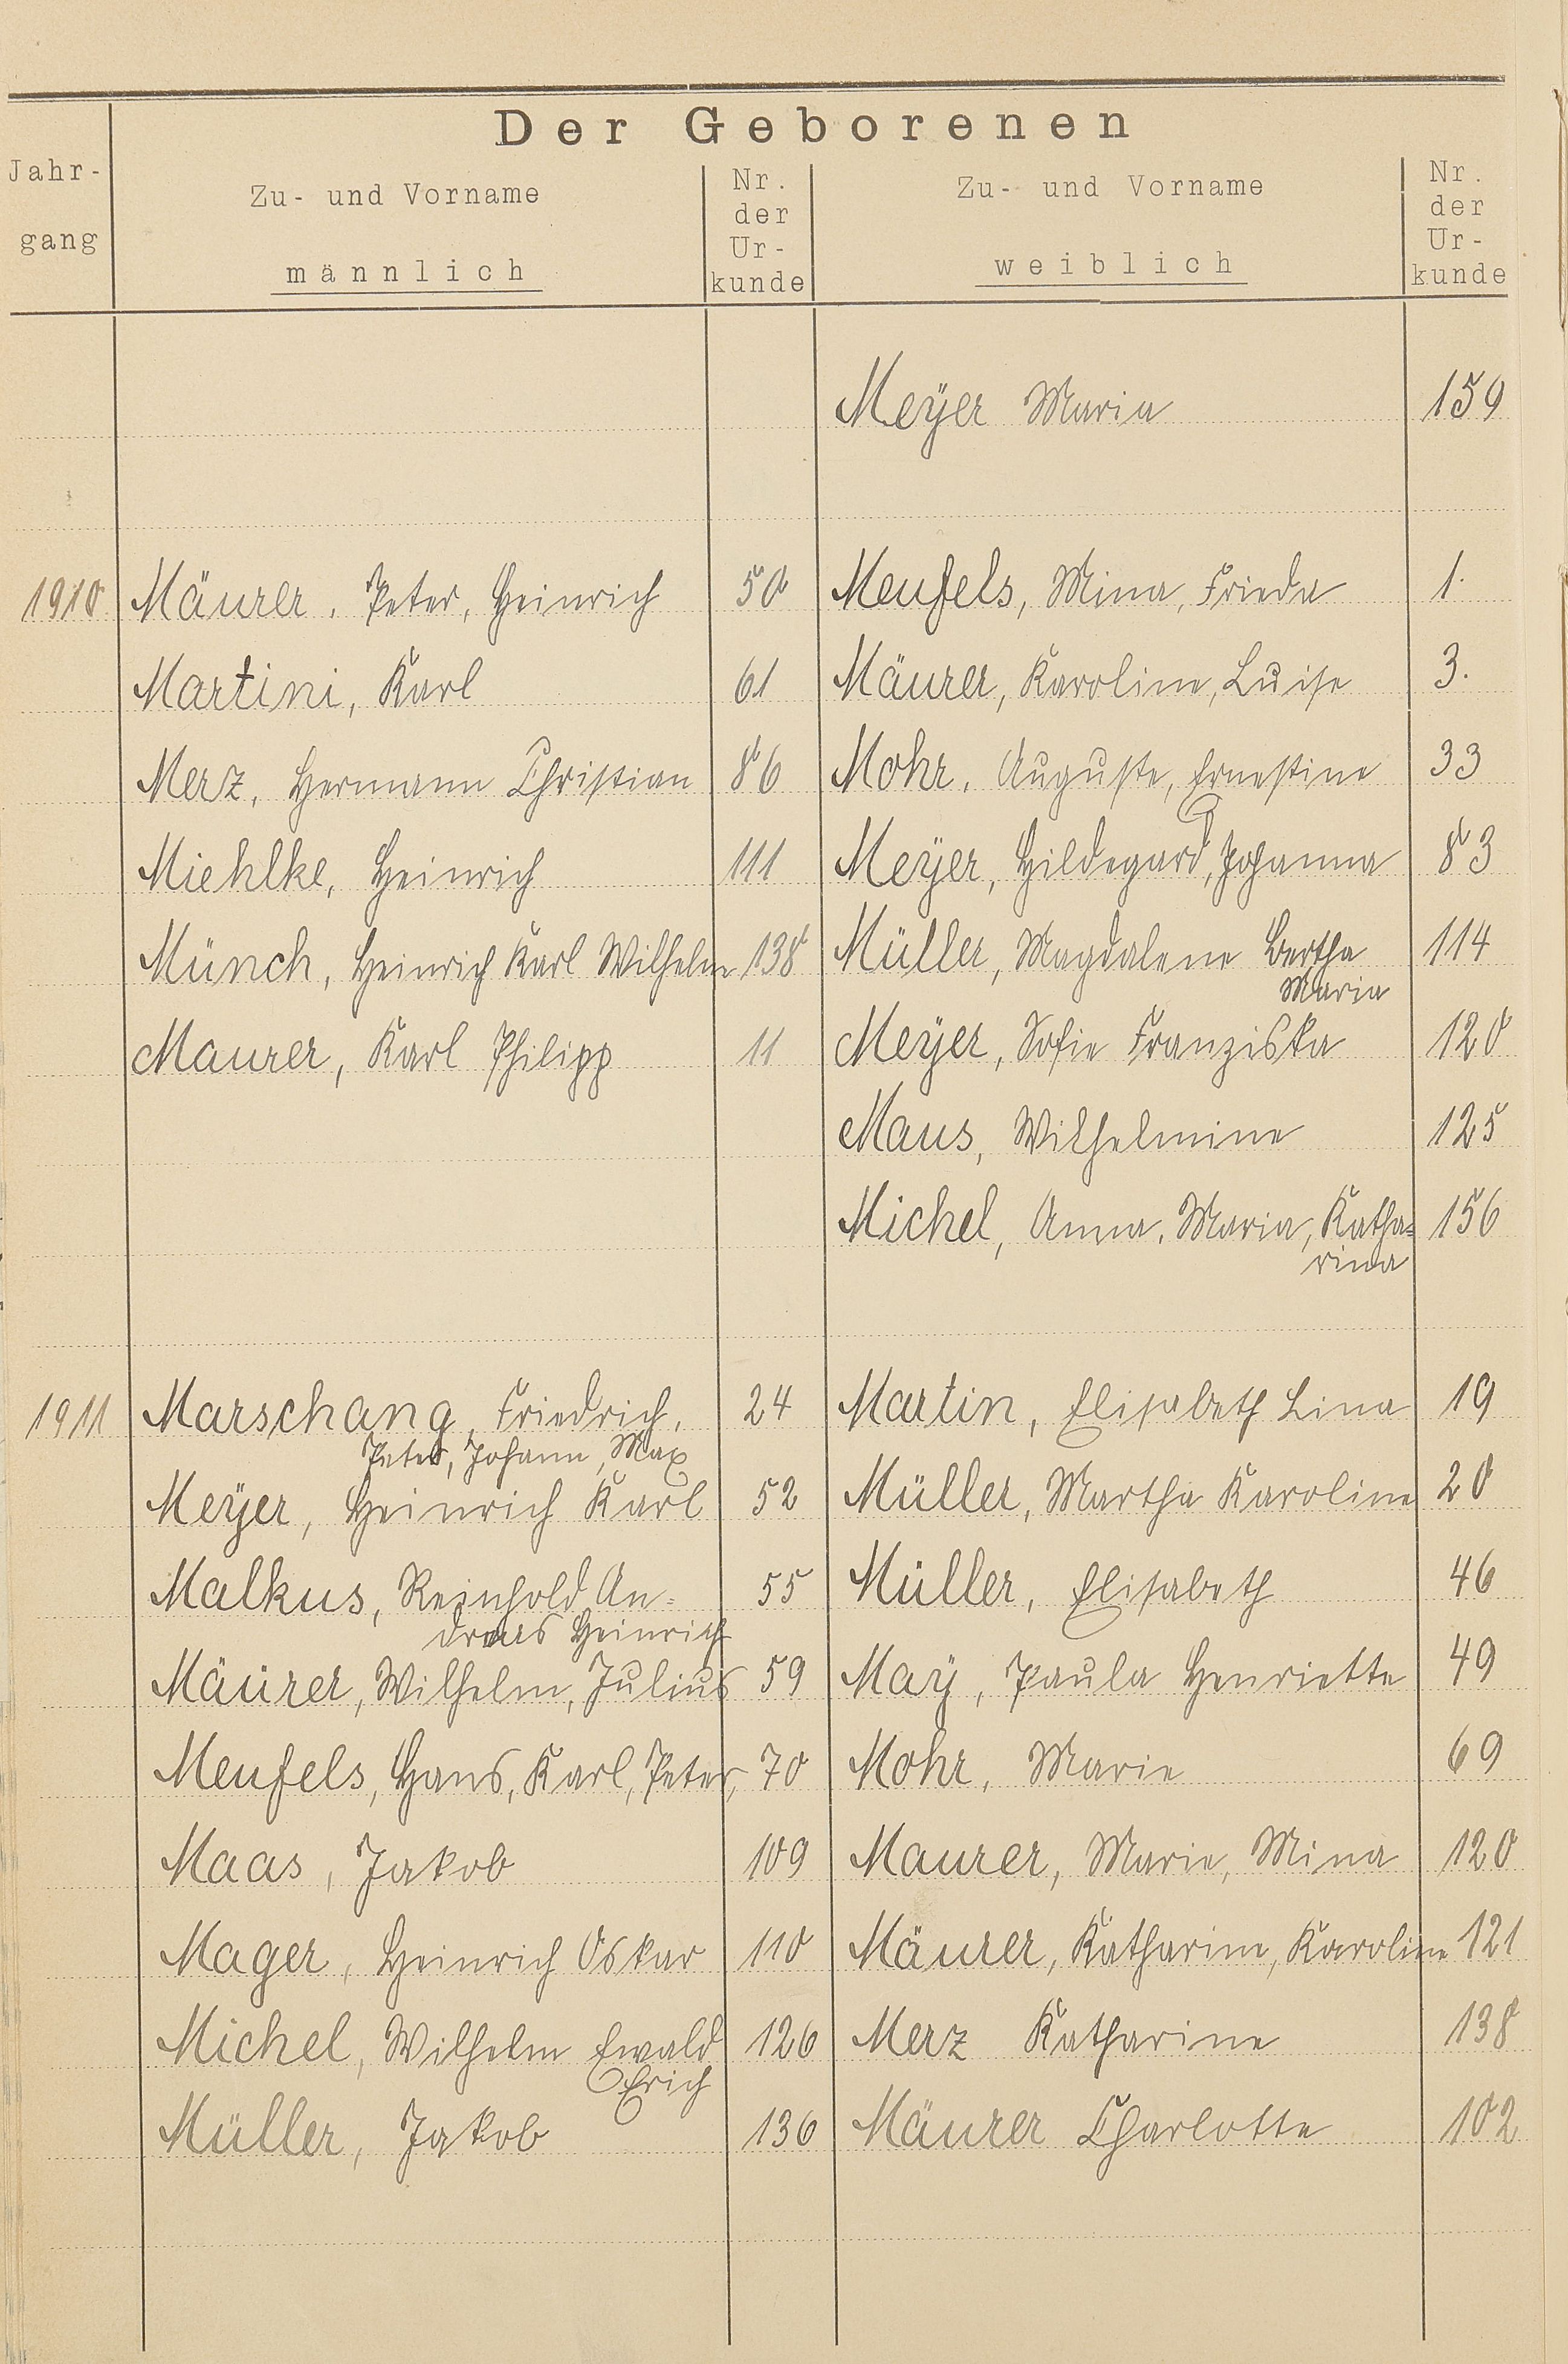 Der Geborenen
Jahr-
gang
Zu- und Vorname
männlich
Nr.
der
Ur-
kunde
Zu- und Vorname
weiblich
Nr.
der
Ur-
kunde
Meÿer Maria 159
1910 Mäurer, Peter, Heinrich 50 Meufels, Mina, Frieda 1.
Martini, Karl 61 Mäurer, Karoline, Luise 3.
Merz, Hermann Christian 86 Mohr, Auguste, Ernestine 33
Miehlke, Heinrich 111 Meÿer, Hildegard, Johanna 83
Münch, Heinrich Karl Wilhelm 138 Müller, Magdalene Bertha 114
Maria
Maurer, Karl Philipp 11 Meÿer, Sofie Franziska 120
Maus, Wilhelmine 125
Michel, Anna, Maria, Katha= 156
rina
1911 Marschang, Friedrich, 24 Martin, Elisabeth Lina 19
Peter, Johann, Max
Meÿer, Heinrich Karl 52 Müller, Martha Karoline 20
Malkus, Reinhold An= 55 Müller, Elisabeth 46
dreas Heinrich
Mäurer, Wilhelm, Julius 59 Maÿ, Paula Henriette 49
Meufels, Hans, Karl, Peter, 70 Mohr, Marie 69
Maas, Jakob 109 Maurer, Marie, Mina 120
Mager, Heinrich Oskar 110 Mäurer, Katharine, Karoline 121
Michel, Wilhelm Ewald 126 Merz Katharine 138
Erich
Müller, Jakob 136 Mäurer Charlotte 102